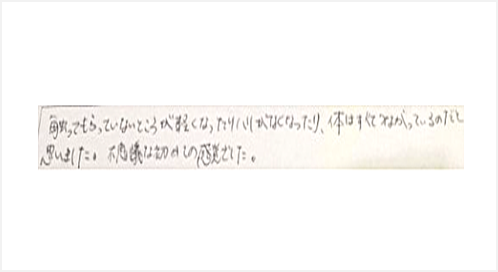 触ってもらっていないところが軽くなったりハリがなくなったり、体はすべてつながっているのだと
思いました。不思議な初めての感覚でした。